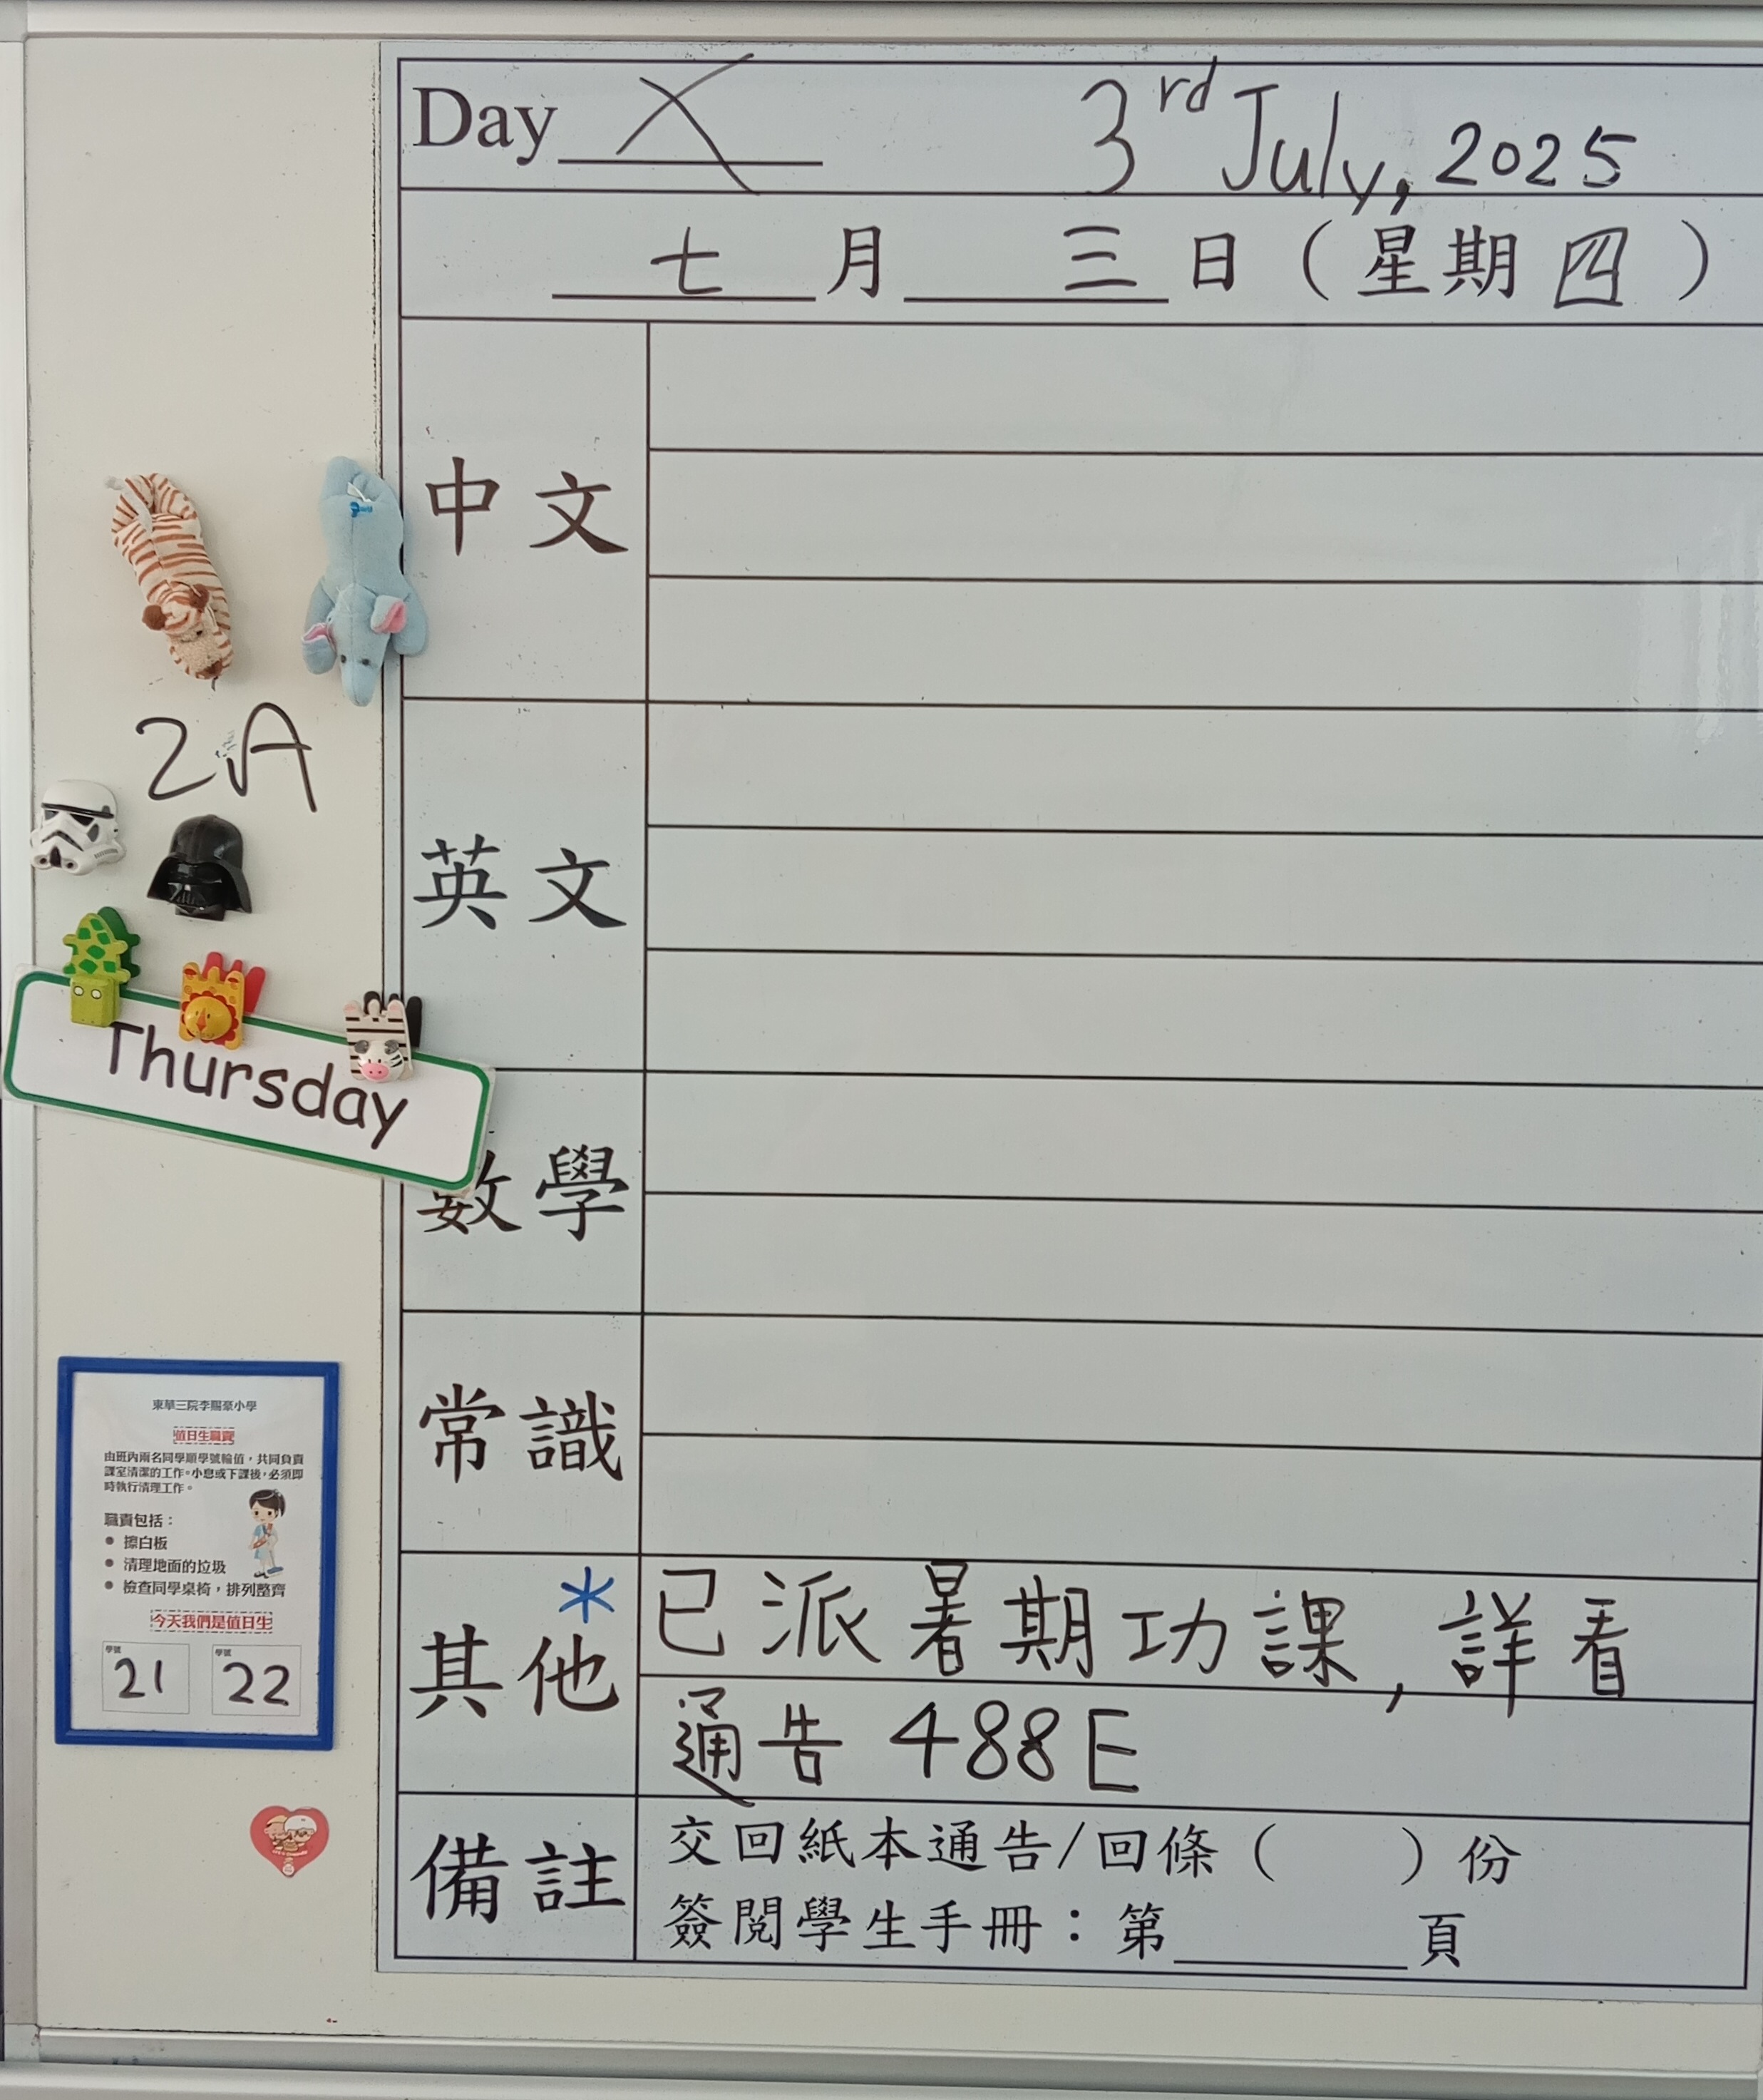 Day X 3rd July, 2025
七月三日(星期四)
中文
2A
英文
Thursday
數學
常識
東華三院李賜豪小學
值日生職責
由班內兩名同學順學號輪值，共同負責
課室清潔的工作。小息或下課後，必須即
時執行清理工作。
職責包括：
● 擦白板
● 清理地面的垃圾
● 檢查同學桌椅，排列整齊
今天我們是值日生
學號 21 學號 22
其他 * 已派暑期功課, 詳看
通告 488E
備註 交回紙本通告/回條( )份
簽閱學生手冊：第______頁